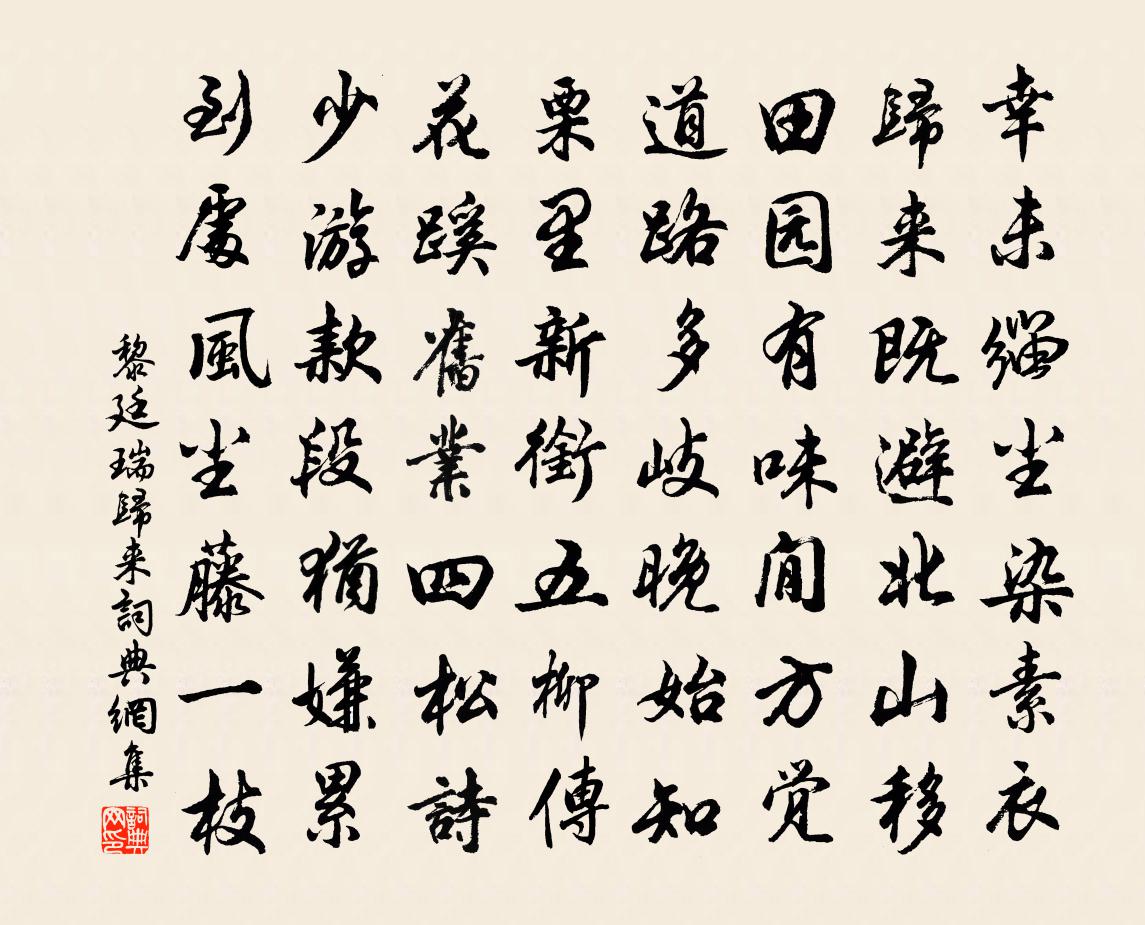 幸未缁尘染素衣
歸来既避北山移
田园有味閒方觉
道路多歧晚始知
栗里新衔五柳傳
花蹊舊業四松詩
少游款段猶嫌累
到處風尘藤一枝
黎廷瑞歸来詞典網集
詞典网印